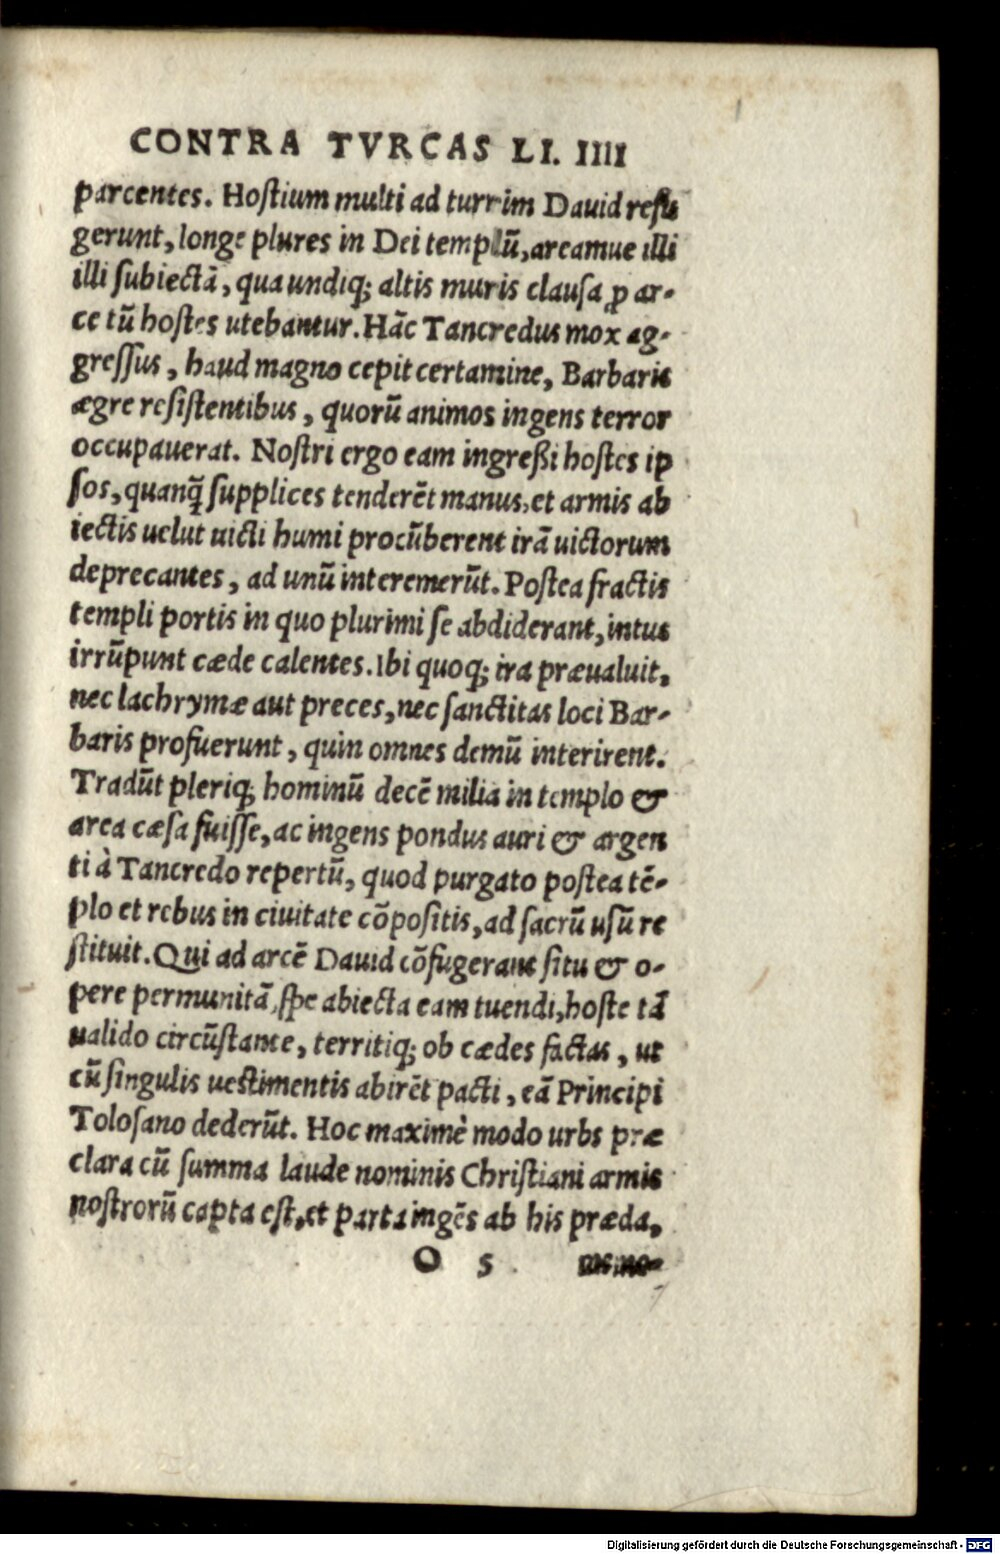 CONTRA TVRCAS LI. IIII
parcentes. Hostium multi ad turrim Dauid refu
gerunt, longe plures in Dei templū, areamue illi
illi subiectā, qua undiq; altis muris clausa ꝓ ar-
ce tū hostes utebantur. Hāc Tancredus mox ag-
gressus, haud magno cepit certamine, Barbaris
ægre resistentibus, quorū animos ingens terror
occupauerat. Nostri ergo eam ingreßi hostes ip
sos, quanq̃ supplices tenderēt manus, et armis ab
iectis uelut uicti humi procūberent irā uictorum
deprecantes, ad unū interemerūt. Postea fractis
templi portis in quo plurimi se abdiderant, intus
irrūpunt cæde calentes. Ibi quoq; ira præualuit,
nec lachrymæ aut preces, nec sanctitas loci Bar-
baris profuerunt, quin omnes demū interirent.
Tradūt pleriq; hominū decē milia in templo &
area cæsa fuisse, ac ingens pondus auri & argen
ti à Tancredo repertū, quod purgato postea tē-
plo et rebus in ciuitate cōpositis, ad sacrū usū re
stituit. Qui ad arcē Dauid cōfugerant situ & o-
pere permunitā, spe abiecta eam tuendi, hoste tā
ualido circūstante, territiq; ob cædes factas, ut
cū singulis uestimentis abirēt pacti, eā Principi
Tolosano dederūt. Hoc maximè modo urbs præ
clara cū summa laude nominis Christiani armis
nostrorū capta est, et parta ingēs ab his præda,
O 5
Digitalisierung gefördert durch die Deutsche Forschungsgemeinschaft - DFG